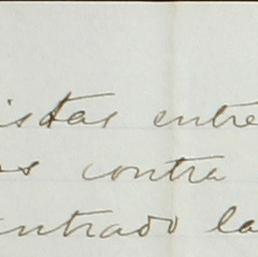 istas entre
as contra
entrado la